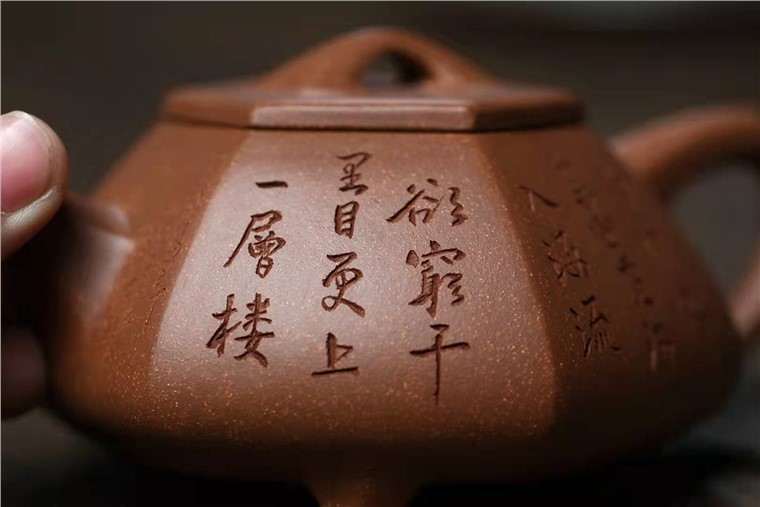 欲窮千
里目更上
一層楼
入海流